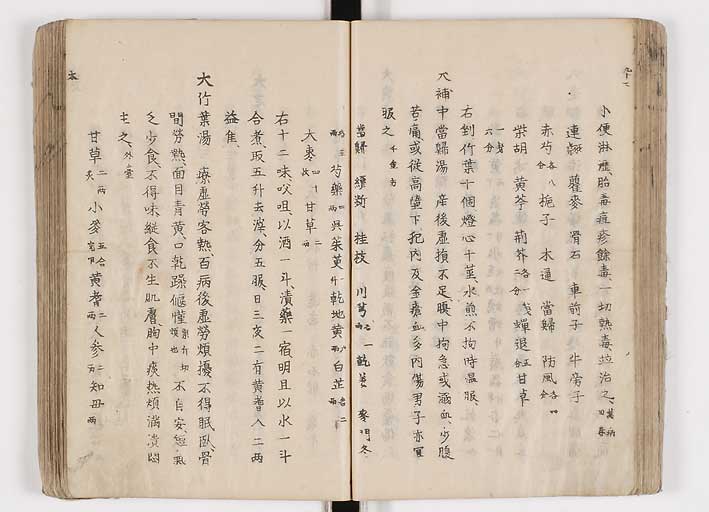 小便淋瀝胎毒痘疹餘毒一切熱毒竝治之 萬病回春
連翹 瞿麥 滑石 車前子 牛旁子
赤芍 各八分 梔子 木通 當歸 防風 各四分
柴胡 黃芩 荊芥 各二分 蟬退 五分 甘草 一錢六分
右剉竹葉十個燈心十莖水煎不拘時溫服
大補中當歸湯 産後虛損不足腹中拘急或溺血少腹
苦痛或從高墮下犯內及金瘡血多內傷男子亦宜
服之 千金方
當歸 續斷 桂枝 川芎 乾姜 麥門冬
芍藥 吳茱萸 乾地黃 白芷
大棗 四十枚 甘草 二兩
右十二味㕮咀以酒一斗漬藥一宿明旦以水一斗
合煮取五升去滓分五服日三夜二有黃耆入二兩
益佳
大竹葉湯 療虛勞客熱百病後虛勞煩擾不得眠臥骨
間勞熱面目青黃口乾躁 不自安短氣
乏少食不得味縱食不生肌膚胸中痰熱煩滿潰悶
主之 外臺
甘草 二兩炙 小麥 五合完用 黃耆 二兩 人參 二兩 知母 二兩